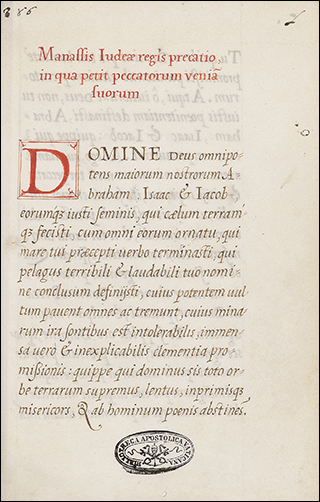 386
Manassis Iudeæ regis precatio,
in qua petit peccatorum veniã
suorum
DOMINE Deus omnipo-
tens maiorum nostrorum A-
braham, Isaac & Iacob
eorumqȝ iusti seminis, qui cælum terram
qȝ fecisti, cum omni eorum ornatu, qui
mare tui præcepti uerbo terminasti, qui
pelagus terribili & laudabili tuo nomi-
ne conclusum definijsti, cuius potentem uul-
tum pauent omnes ac tremunt, cuius mina-
rum ira sontibus est intolerabilis, immen-
sa vero & inexplicabilis clementia pro-
mißionis: quippe qui dominus sis toto or-
be terrarum supremus, lentus, inprimisqȝ
misericors, & ab hominum poenis abstines.
BIBLIOTHECA APOSTOLICA VATICANA